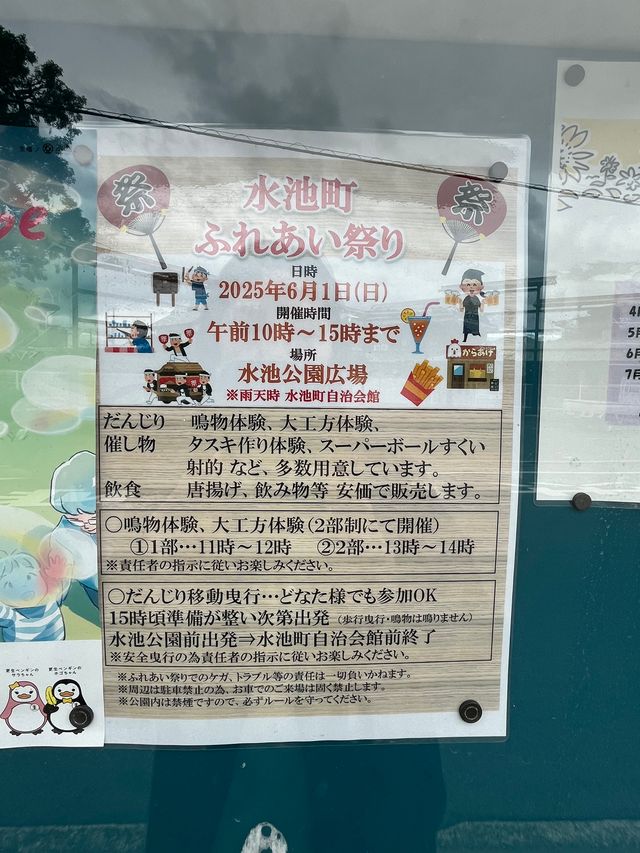 祭
水池町
祭
ふれあい祭り
日時
2025年6月1日(日)
開催時間
午前10時～15時まで
場所
水池公園広場
※雨天時 水池町自治会館
からあげ
だんじり 鳴物体験、大工方体験、
催し物 タスキ作り体験、スーパーボールすくい
射的 など、多数用意しています。
飲食 唐揚げ、飲み物等 安価で販売します。
○鳴物体験、大工方体験（2部制にて開催）
①1部…11時～12時 ②2部…13時～14時
※責任者の指示に従いお楽しみください。
○だんじり移動曳行…どなた様でも参加OK
15時頃準備が整い次第出発（歩行曳行・鳴物は鳴りません）
水池公園前出発⇒水池町自治会館前終了
※安全曳行の為責任者の指示に従いお楽しみください。
※ふれあい祭りでのケガ、トラブル等の責任は一切負いかねます。
※周辺は駐車禁止の為、お車でのご来場は固く禁止します。
※公園内は禁煙ですので、必ずルールを守ってください。
更生ペンギンの
サラちゃん
更生ペンギンの
ホゴちゃん
4月
5月
6月
7月